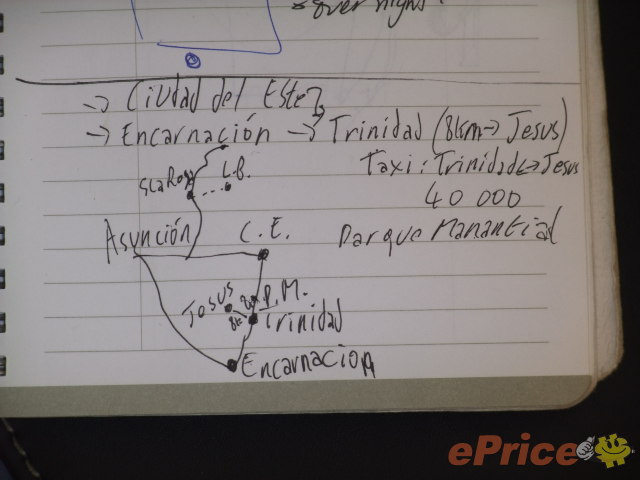 over night!
→ Ciudad del Este
→ Encarnación → Trinidad (8km → Jesus)
Taxi: Trinidad ↔ Jesus
40 000
Parque Manantial
Sta Rosa
L.B.
Asunción
C.E.
Jesus
P.M.
8k
Trinidad
Encarnacion
ePrice